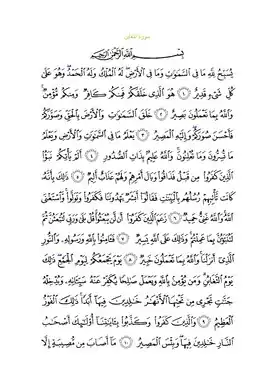 سورة التغابن
بسم الله الرحمن الرحيم
يُسَبِّحُ لِلَّهِ مَا فِى السَّمَٰوَٰتِ وَمَا فِى الْأَرْضِ لَهُ الْمُلْكُ وَلَهُ الْحَمْدُ وَهُوَ عَلَىٰ
كُلِّ شَىْءٍ قَدِيرٌ ١ هُوَ الَّذِى خَلَقَكُمْ فَمِنكُمْ كَافِرٌ وَمِنكُم مُّؤْمِنٌ
وَاللَّهُ بِمَا تَعْمَلُونَ بَصِيرٌ ٢ خَلَقَ السَّمَٰوَٰتِ وَالْأَرْضَ بِالْحَقِّ وَصَوَّرَكُمْ
فَأَحْسَنَ صُوَرَكُمْ وَإِلَيْهِ الْمَصِيرُ ٣ يَعْلَمُ مَا فِى السَّمَٰوَٰتِ وَالْأَرْضِ وَيَعْلَمُ
مَا تُسِرُّونَ وَمَا تُعْلِنُونَ وَاللَّهُ عَلِيمٌ بِذَاتِ الصُّدُورِ ٤ أَلَمْ يَأْتِكُمْ نَبَؤُا
الَّذِينَ كَفَرُوا مِن قَبْلُ فَذَاقُوا وَبَالَ أَمْرِهِمْ وَلَهُمْ عَذَابٌ أَلِيمٌ ٥ ذَٰلِكَ بِأَنَّهُ
كَانَت تَّأْتِيهِمْ رُسُلُهُم بِالْبَيِّنَٰتِ فَقَالُوا أَبَشَرٌ يَهْدُونَنَا فَكَفَرُوا وَتَوَلَّوا وَّاسْتَغْنَى
اللَّهُ وَاللَّهُ غَنِىٌّ حَمِيدٌ ٦ زَعَمَ الَّذِينَ كَفَرُوا أَن لَّن يُبْعَثُوا قُلْ بَلَىٰ وَرَبِّى لَتُبْعَثُنَّ ثُمَّ
لَتُنَبَّؤُنَّ بِمَا عَمِلْتُمْ وَذَٰلِكَ عَلَى اللَّهِ يَسِيرٌ ٧ فَـَٔامِنُوا بِاللَّهِ وَرَسُولِهِ وَالنُّورِ
الَّذِى أَنزَلْنَا وَاللَّهُ بِمَا تَعْمَلُونَ خَبِيرٌ ٨ يَوْمَ يَجْمَعُكُمْ لِيَوْمِ الْجَمْعِ ذَٰلِكَ
يَوْمُ التَّغَابُنِ وَمَن يُؤْمِن بِاللَّهِ وَيَعْمَلْ صَٰلِحًا يُكَفِّرْ عَنْهُ سَيِّـَٔاتِهِ وَيُدْخِلْهُ
جَنَّٰتٍ تَجْرِى مِن تَحْتِهَا الْأَنْهَٰرُ خَٰلِدِينَ فِيهَا أَبَدًا ذَٰلِكَ الْفَوْزُ
الْعَظِيمُ ٩ وَالَّذِينَ كَفَرُوا وَكَذَّبُوا بِـَٔايَٰتِنَا أُولَٰئِكَ أَصْحَٰبُ
النَّارِ خَٰلِدِينَ فِيهَا وَبِئْسَ الْمَصِيرُ ١٠ مَا أَصَابَ مِن مُّصِيبَةٍ إِلَّا